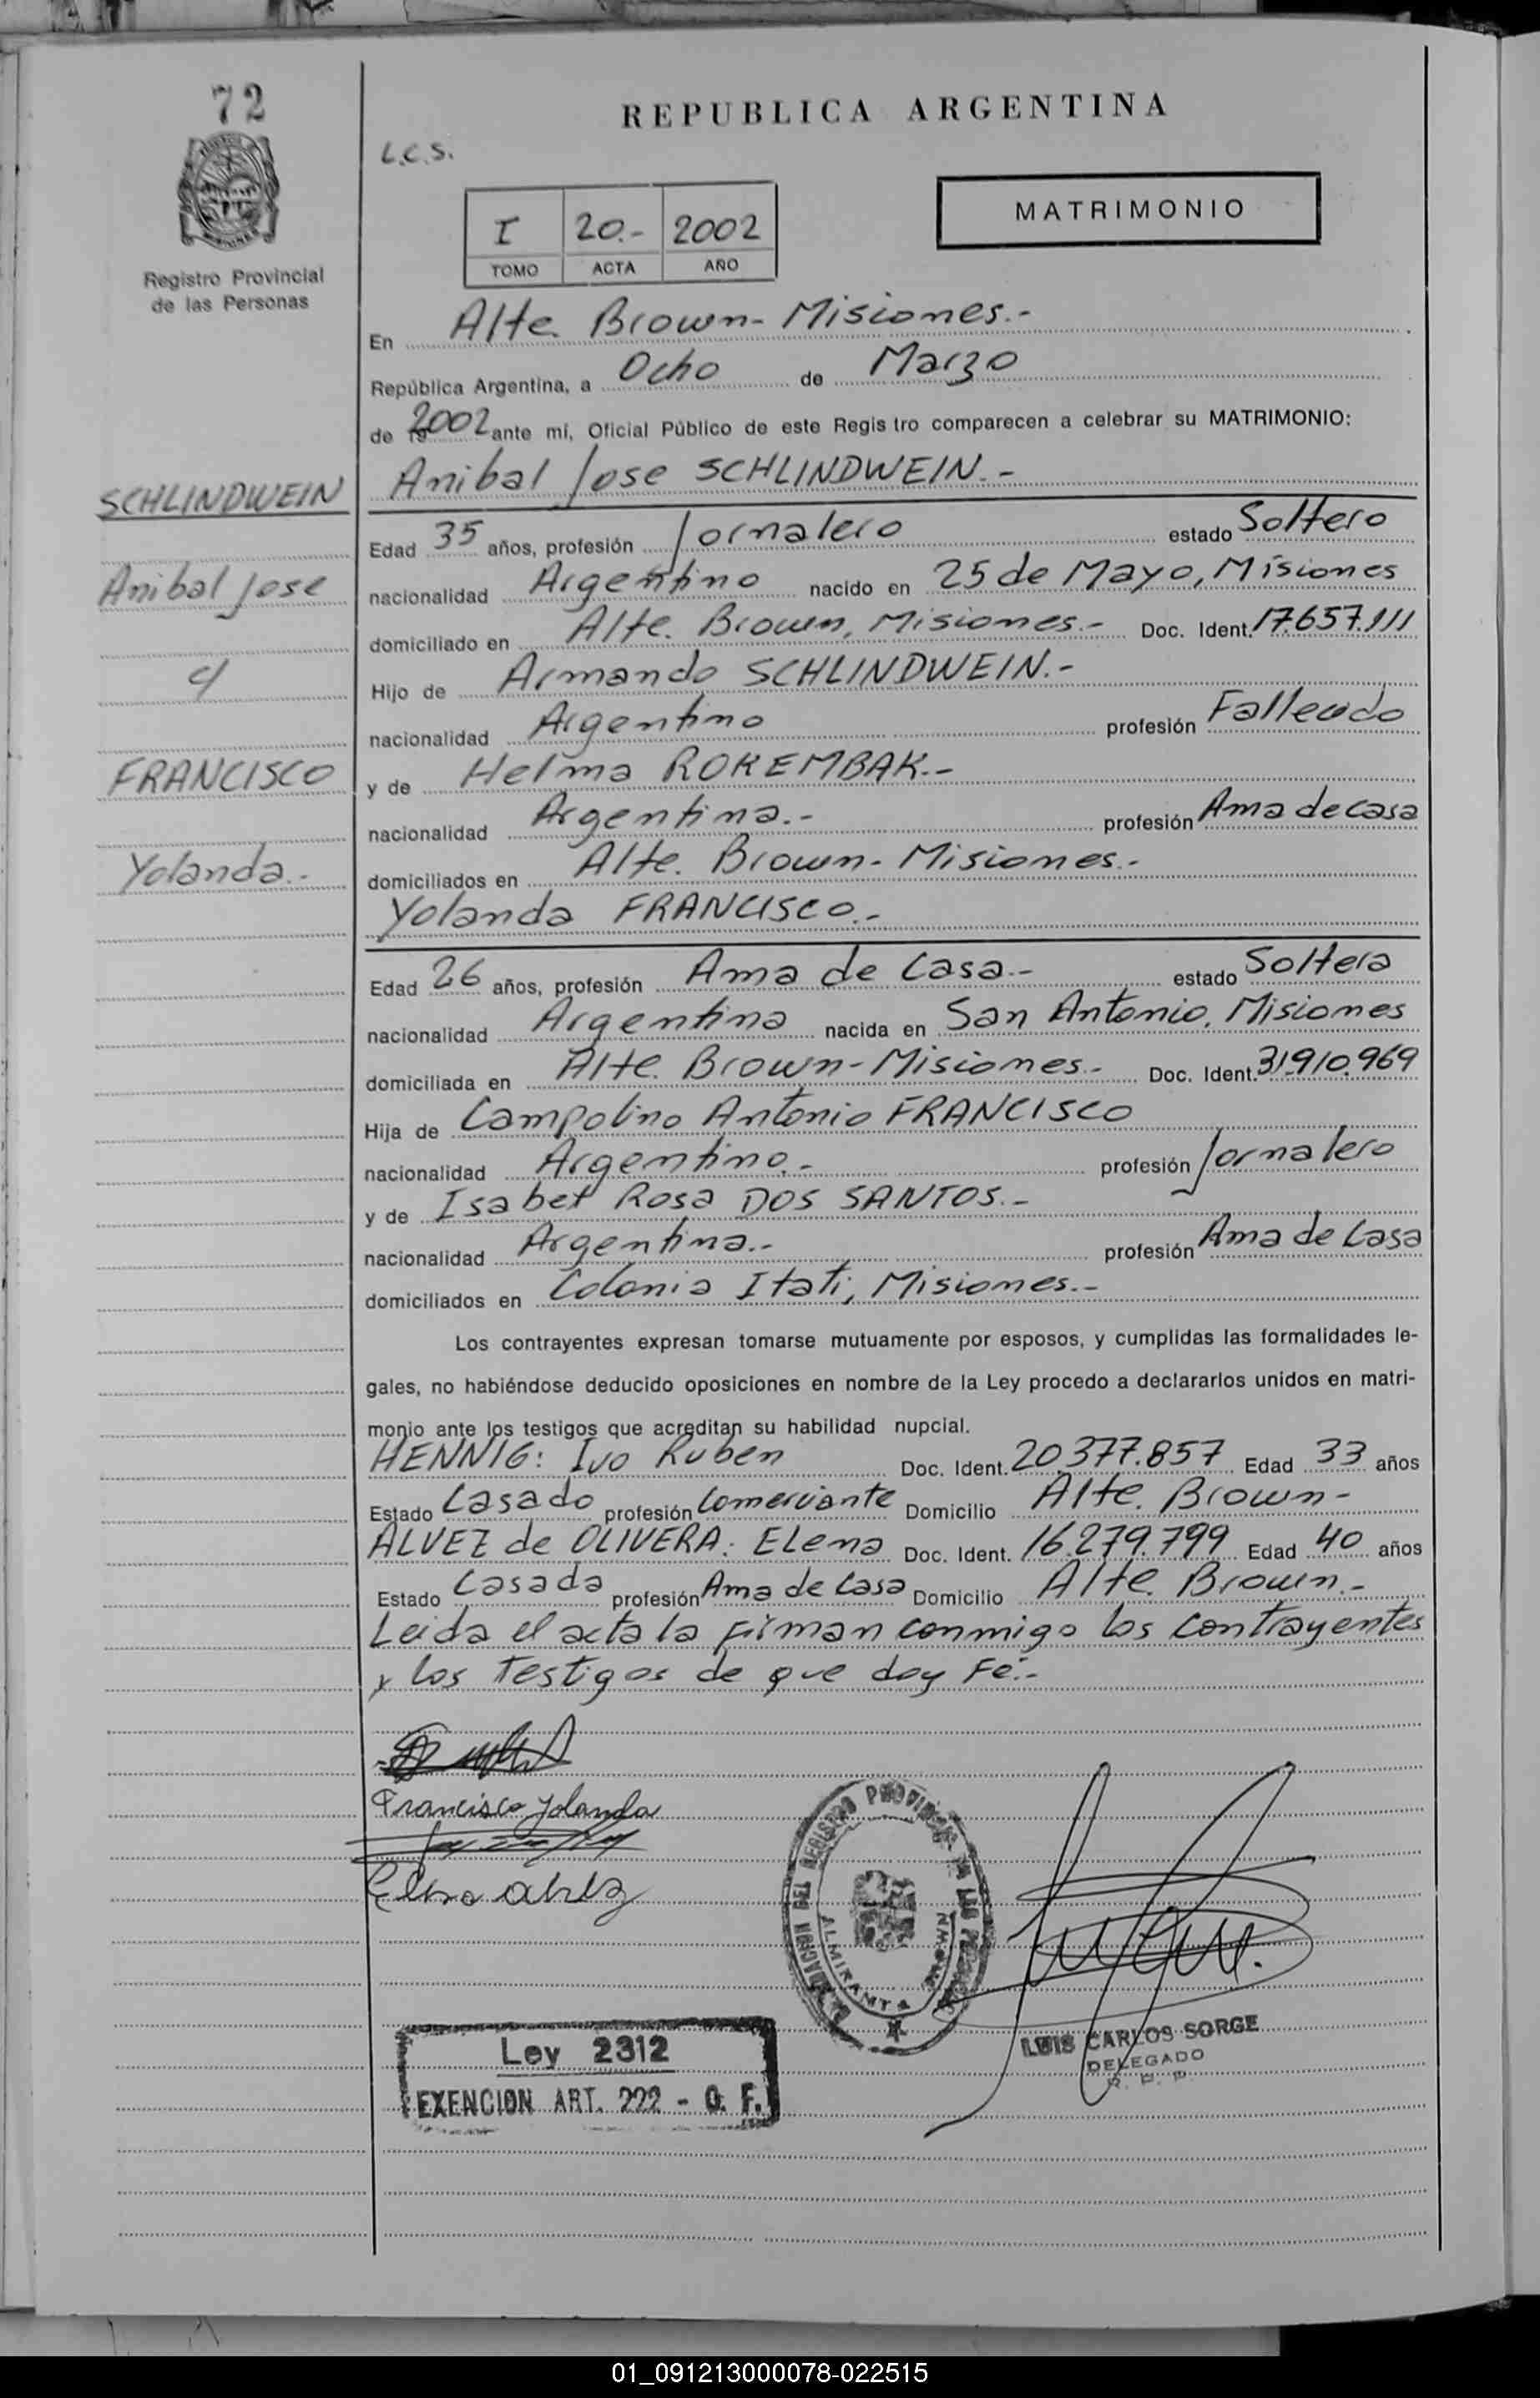 72
Registro Provincial
de las Personas
REPUBLICA ARGENTINA
L.C.S.
I 20.- 2002
TOMO ACTA AÑO
MATRIMONIO
En Alte. Brown - Misiones.-
República Argentina, a Ocho de Marzo
de 2002 ante mí, Oficial Público de este Regis tro comparecen a celebrar su MATRIMONIO:
SCHLINDWEIN
Anibal Jose
c/
FRANCISCO
Yolanda.-
Anibal Jose SCHLINDWEIN.-
Edad 35 años, profesión Jornalero estado Soltero
nacionalidad Argentino nacido en 25 de Mayo, Misiones
domiciliado en Alte. Brown, Misiones.- Doc. Ident. 17.657.111
Hijo de Armando SCHLINDWEIN.-
nacionalidad Argentino profesión Fallecido
y de Helma ROKEMBAK.-
nacionalidad Argentina.- profesión Ama de casa
domiciliados en Alte. Brown - Misiones.-
Yolanda FRANCISCO.-
Edad 26 años, profesión Ama de Casa.- estado Soltera
nacionalidad Argentina nacida en San Antonio, Misiones
domiciliada en Alte. Brown - Misiones.- Doc. Ident. 31.910.969
Hija de Campolino Antonio FRANCISCO
nacionalidad Argentino.- profesión Jornalero
y de Isabel Rosa DOS SANTOS.-
nacionalidad Argentina.- profesión Ama de Casa
domiciliados en Colonia Itati, Misiones.-
Los contrayentes expresan tomarse mutuamente por esposos, y cumplidas las formalidades le-
gales, no habiéndose deducido oposiciones en nombre de la Ley procedo a declararlos unidos en matri-
monio ante los testigos que acreditan su habilidad nupcial.
HENNIG: Ivo Ruben Doc. Ident. 20.377.857 Edad 33 años
Estado Casado profesión Comerciante Domicilio Alte. Brown-
ALVEZ de OLIVERA: Elena Doc. Ident. 16.279.799 Edad 40 años
Estado Casada profesión Ama de Casa Domicilio Alte. Brown.-
Leida el acta la Firman conmigo los contrayentes
y los Testigos de que doy Fé.-
Francisco Yolanda
Elena alvez
DELEGACION DEL REGISTRO PROVINCIAL DE LAS PERSONAS
ALMIRANTE BROWN
LUIS CARLOS SORGE
DELEGADO
R. P. P.
Ley 2312
EXENCION ART. 222 - O. F.
01_091213000078-022515